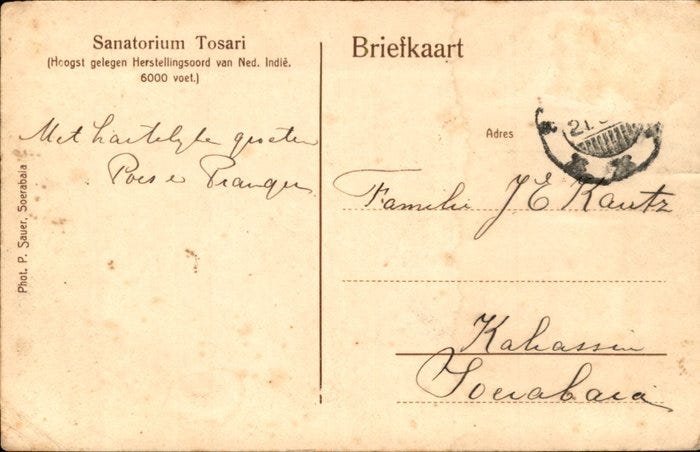 Sanatorium Tosari
(Hoogst gelegen Herstellingsoord van Ned. Indië.
6000 voet.)
Met hartelijke groeten
Phot. P. Sauer, Soerabaia
Briefkaart
Adres
21.
Familie J E Kautz
Kahassin
Soerabaia